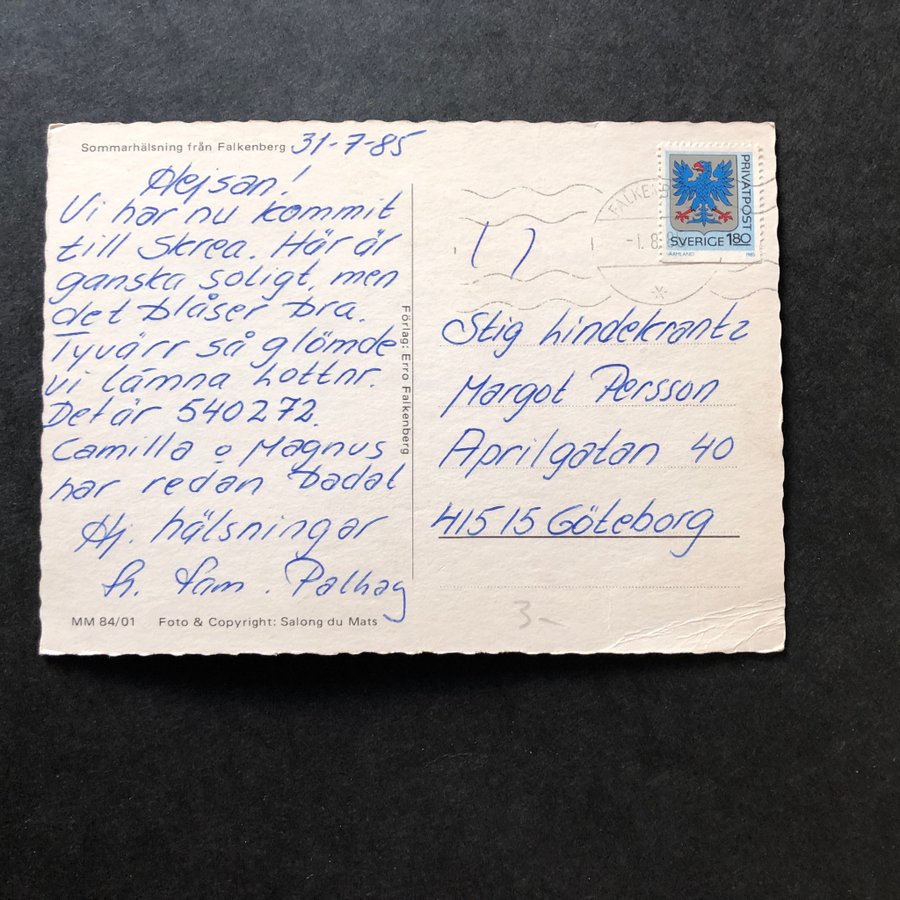 Sommarhälsning från Falkenberg 31-7-85
Hejsan!
Vi har nu kommit
till Skrea. Här är
ganska soligt, men
det blåser bra.
Tyvärr så glömde
vi lämna Lottnr.
Det är 540272.
Camilla o Magnus
har redan badat
Hj. hälsningar
fr. fam. Palhag
MM 84/01 Foto & Copyright: Salong du Mats
Förlag: Erro Falkenberg
PRIVATPOST
SVERIGE 180
VÄRMLAND 1985
-1.8
Stig Lindekrantz
Margot Persson
Aprilgatan 40
415 15 Göteborg
3-